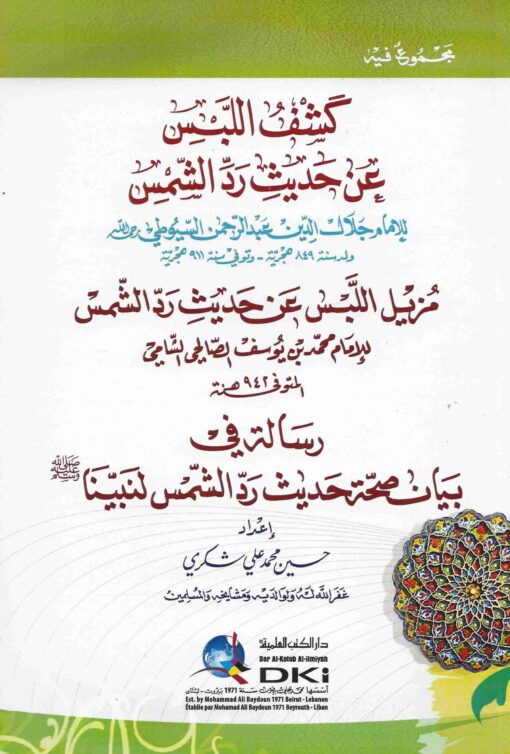 مجموع فيه
كَشْفُ اللَّبْسِ
عَن حَديثِ رَدِّ الشَّمْسِ
للإمام جلال الدين عبد الرحمن السيوطي رحمه الله
ولد سنة ٨٤٩ هجرية - وتوفي سنة ٩١١ هجرية
مُزيل اللَّبْس عَن حَديثِ رَدِّ الشَّمس
للإمام محمد بن يُوسف الصالحي الشامي
المتوفى ٩٤٢ هـ سنة
رسالة في
بيان صحة حديث ردّ الشمس لنبيّنا ﷺ
إعداد
حسين محمد علي شكري
غفر الله له ولوالديه ومشايخه والمسلمين
دار الكتب العلمية
Dar Al-Kotob Al-ilmiyah
DKi
أسسها محمد علي بيضون سنة 1971 بيروت - لبنان
Est. by Mohammad Ali Baydoun 1971 Beirut - Lebanon
Établie par Mohamad Ali Baydoun 1971 Beyrouth - Liban